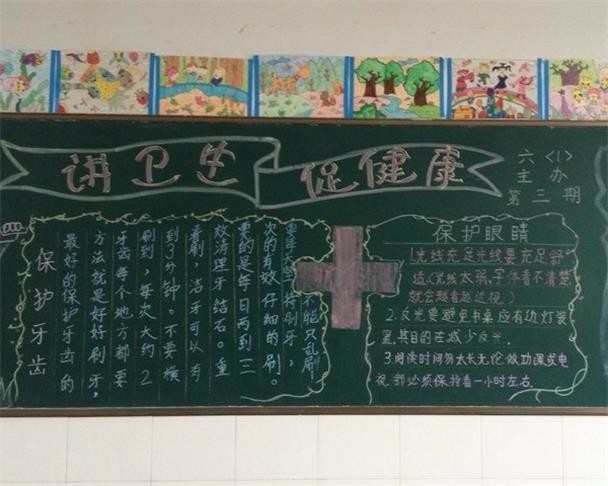 讲卫生 促健康
六〈1〉
主办
第三期
保护牙齿
最好的保护牙齿的
方法就是好好刷牙,
牙齿每个地方都要
刷到,每次大约2
到3分钟。不要横
着刷,洁牙可以有
效清理牙结石。重
要的是每日两到三
次的有效仔细的刷。
持刷牙,
不能只乱刷
保护眼睛
1.光线充足光线要充足舒
适,(光线太弱,字体看不清楚
就会越看越近视)
2.反光要避免书桌应有边灯装
置,其目的在减少反光。
3.阅读时间勿太长无论做功课或电
视,都必须保持看一小时左右.